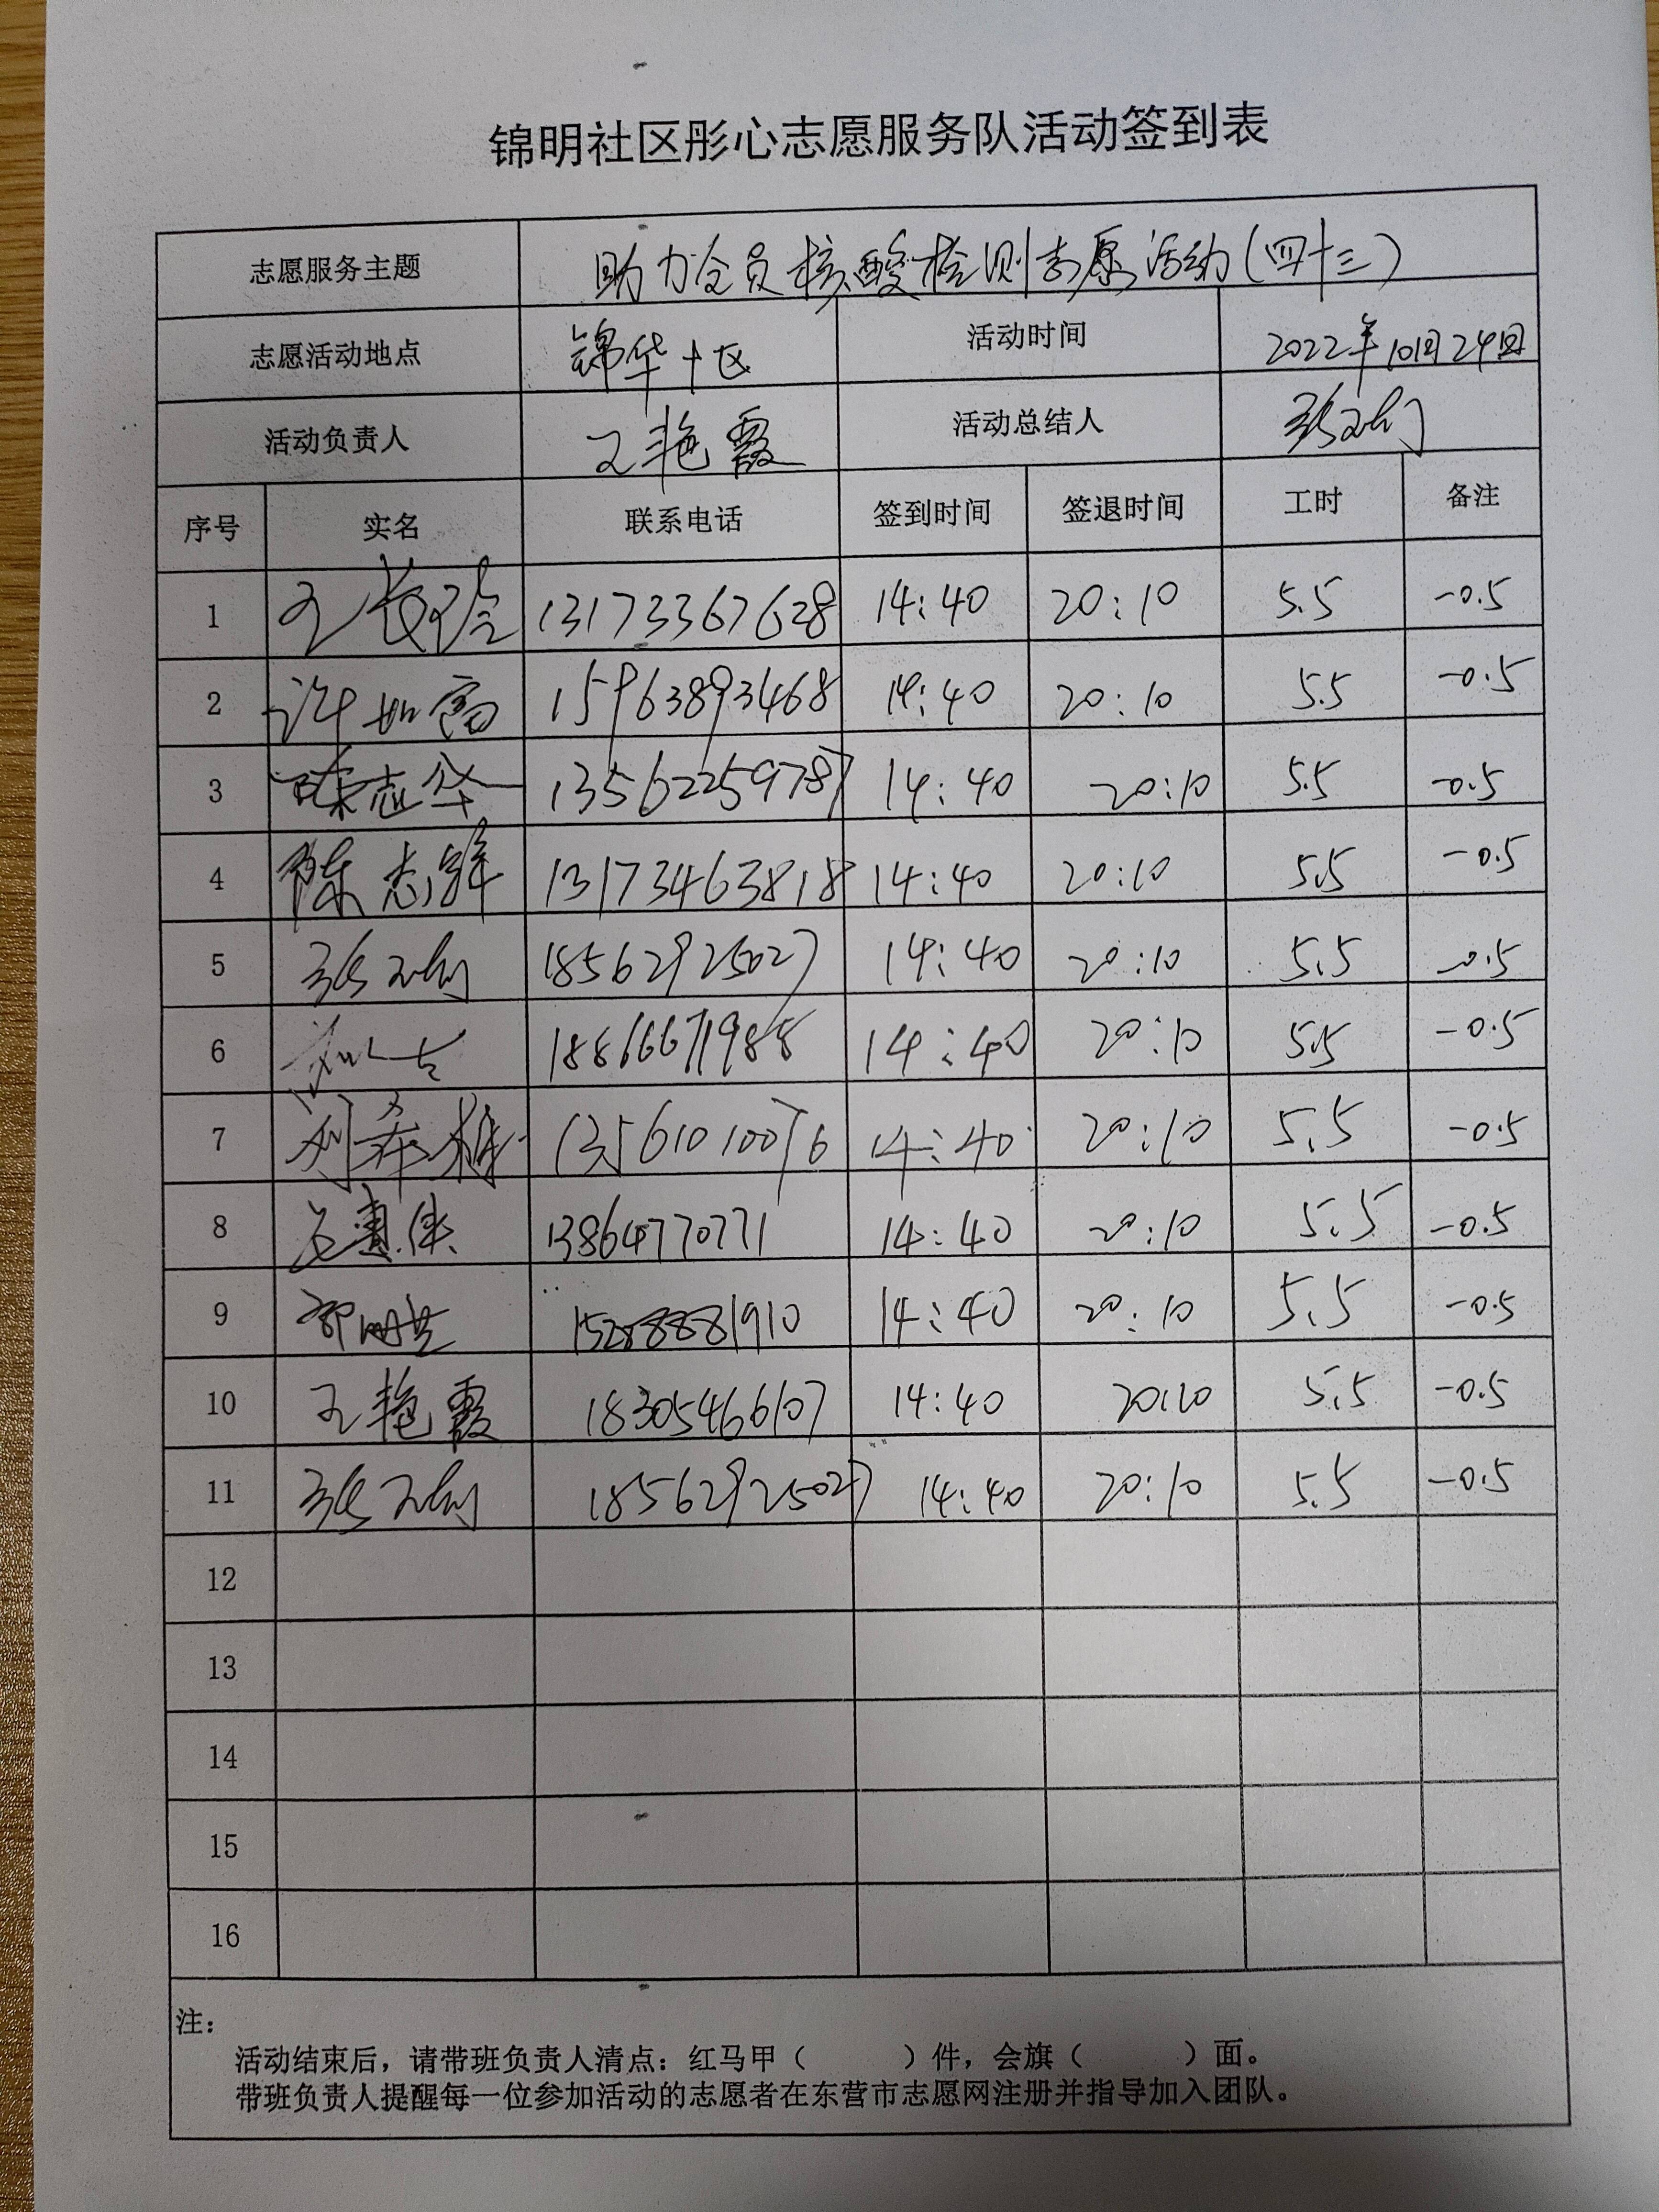 锦明社区彤心志愿服务队活动签到表
志愿服务主题 助力全员核酸检测志愿活动(四十三)
志愿活动地点 锦华十区 活动时间 2022年10月24日
活动负责人 王艳霞 活动总结人
序号 实名 联系电话 签到时间 签退时间 工时 备注
1 13173367628 14:40 20:10 5.5 -0.5
2 许如富 15963893468 14:40 20:10 5.5 -0.5
3 陈志华 13562259787 14:40 20:10 5.5 -0.5
4 陈志锋 13173463818 14:40 20:10 5.5 -0.5
5 18562925027 14:40 20:10 5.5 -0.5
6 18866671988 14:40 20:10 5.5 -0.5
7 14:40 20:10 5.5 -0.5
8 13864770771 14:40 20:10 5.5 -0.5
9 14:40 20:10 5.5 -0.5
10 王艳霞 18305466107 14:40 20:10 5.5 -0.5
11 18562925027 14:40 20:10 5.5 -0.5
12
13
14
15
16
注:
活动结束后,请带班负责人清点:红马甲( )件,会旗( )面。
带班负责人提醒每一位参加活动的志愿者在东营市志愿网注册并指导加入团队。